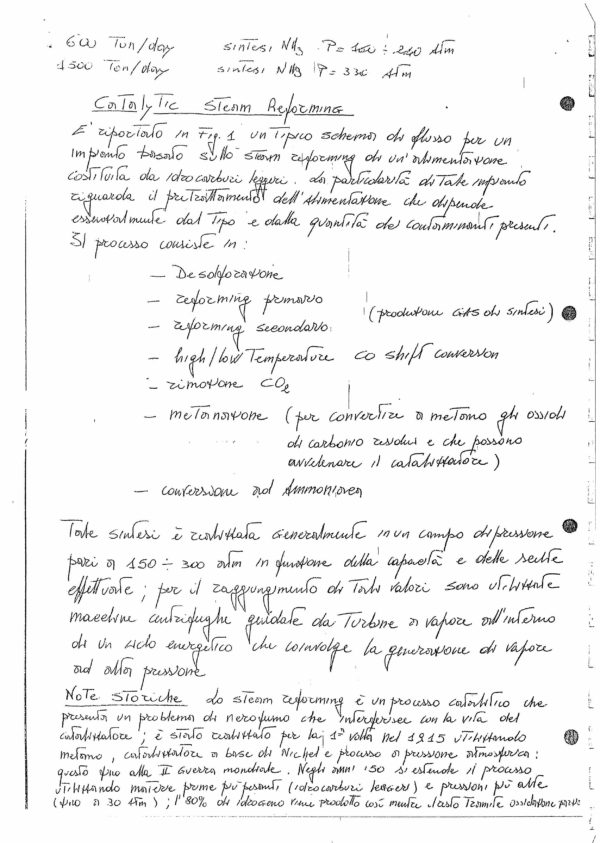 600 Ton/day sintesi NH3 P= 150 ÷ 240 Atm
1500 Ton/day sintesi NH3 P= 330 Atm
Catalytic Steam Reforming
E' riportato in Fig. 1 un tipico schema di flusso per un
impianto basato sullo steam reforming di un'alimentazione
costituita da idrocarburi leggeri. La particolarità di tale impianto
riguarda il pretrattamento dell'alimentazione che dipende
essenzialmente dal tipo e dalla quantità dei contaminanti presenti.
Il processo consiste in:
— Desolforazione
— reforming primario
(produzione GAS di sintesi)
— reforming secondario
— high/low Temperature CO shift conversion
— rimozione CO2
— metanazione (per convertire a metano gli ossidi
di carbonio residui e che possono
avvelenare il catalizzatore)
— conversione ad Ammoniaca
Tale sintesi è realizzata generalmente in un campo di pressione
pari a 150 ÷ 300 atm in funzione della capacità e delle scelte
effettuate; per il raggiungimento di tali valori sono utilizzate
macchine centrifughe guidate da Turbine a vapore all'interno
di un ciclo energetico che coinvolge la generazione di vapore
ad alta pressione
Note Storiche Lo steam reforming è un processo catalitico che
presenta un problema di nerofumo che interferisce con la vita del
catalizzatore; è stato realizzato per la 1a volta nel 1915 utilizzando
metano, catalizzatore a base di Nichel e processo a pressione atmosferica:
questo fino alla II Guerra mondiale. Negli anni '50 si estende il processo
utilizzando materie prime più pesanti (idrocarburi leggeri) e pressioni più alte
(fino a 30 Atm); l'80% di idrogeno viene prodotto così mentre il resto tramite ossidazione